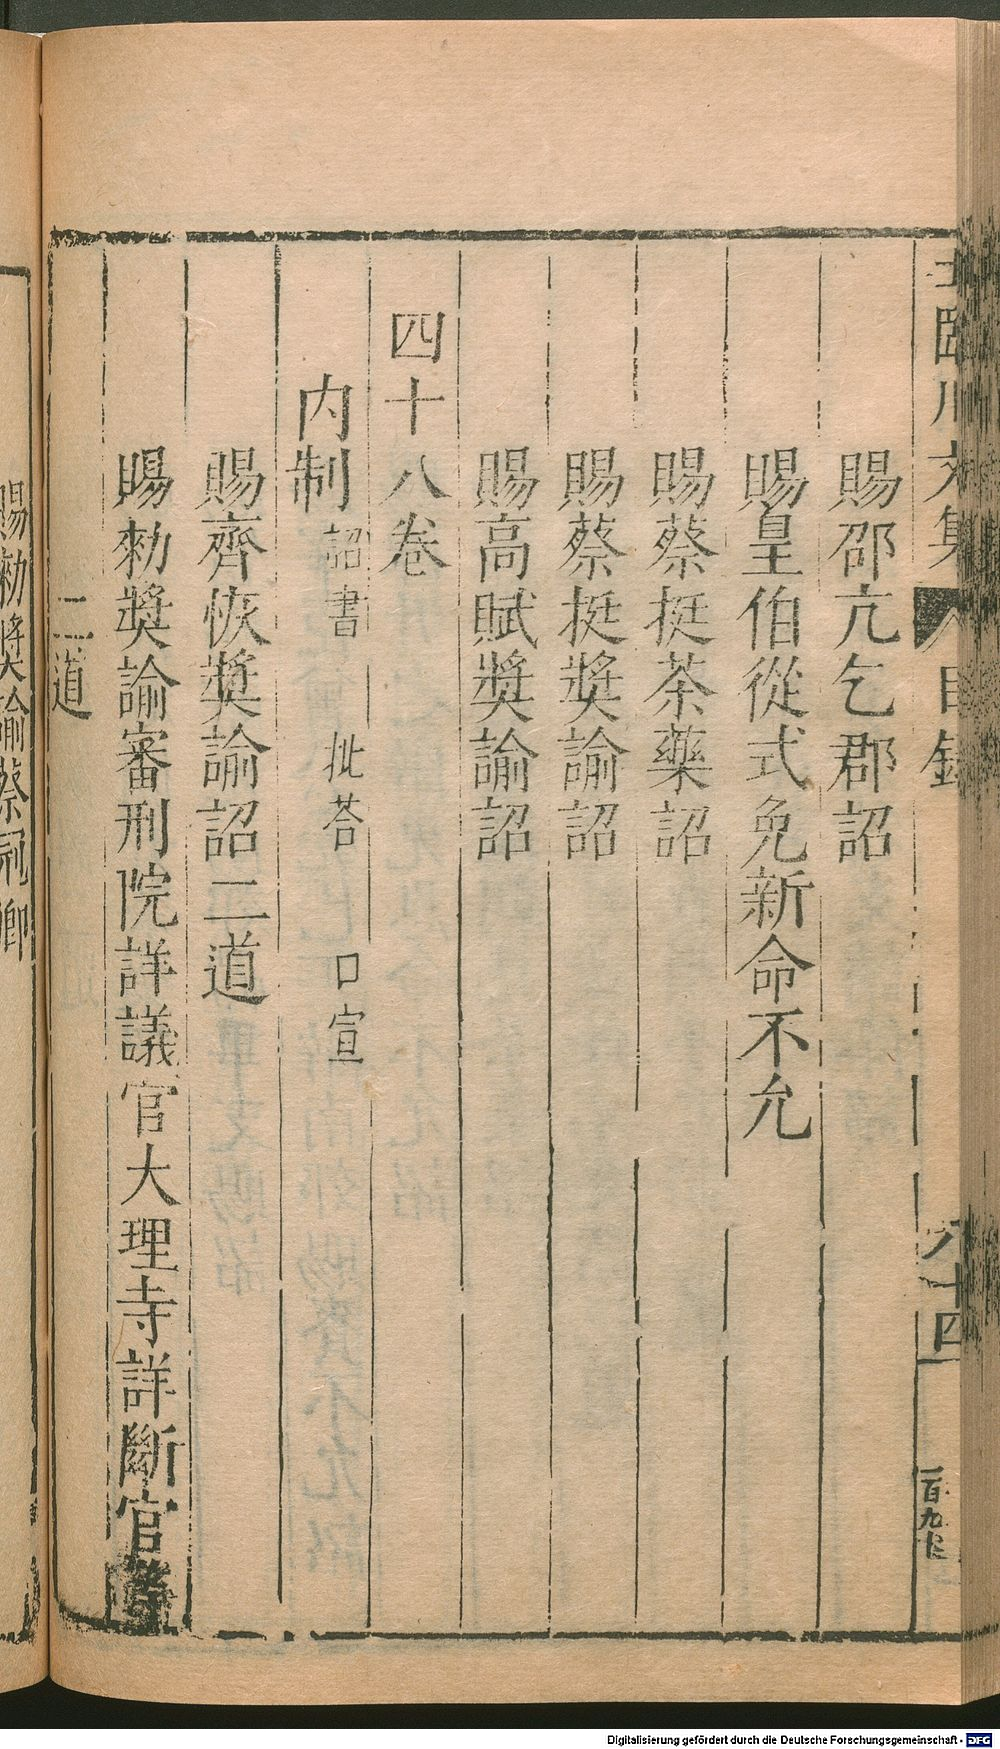 王臨川文集 目錄 八十四
賜邵亢乞郡詔
賜皇伯從式免新命不允
賜蔡挺茶藥詔
賜蔡挺奬諭詔
賜高賦奬諭詔
四十八卷
內制 詔書 批荅 口宣
賜齊恢奬諭詔二道
賜勑奬諭審刑院詳議官大理寺詳斷官等
二道
賜勑奬諭蔡冠卿
Digitalisierung gefördert durch die Deutsche Forschungsgemeinschaft - DFG